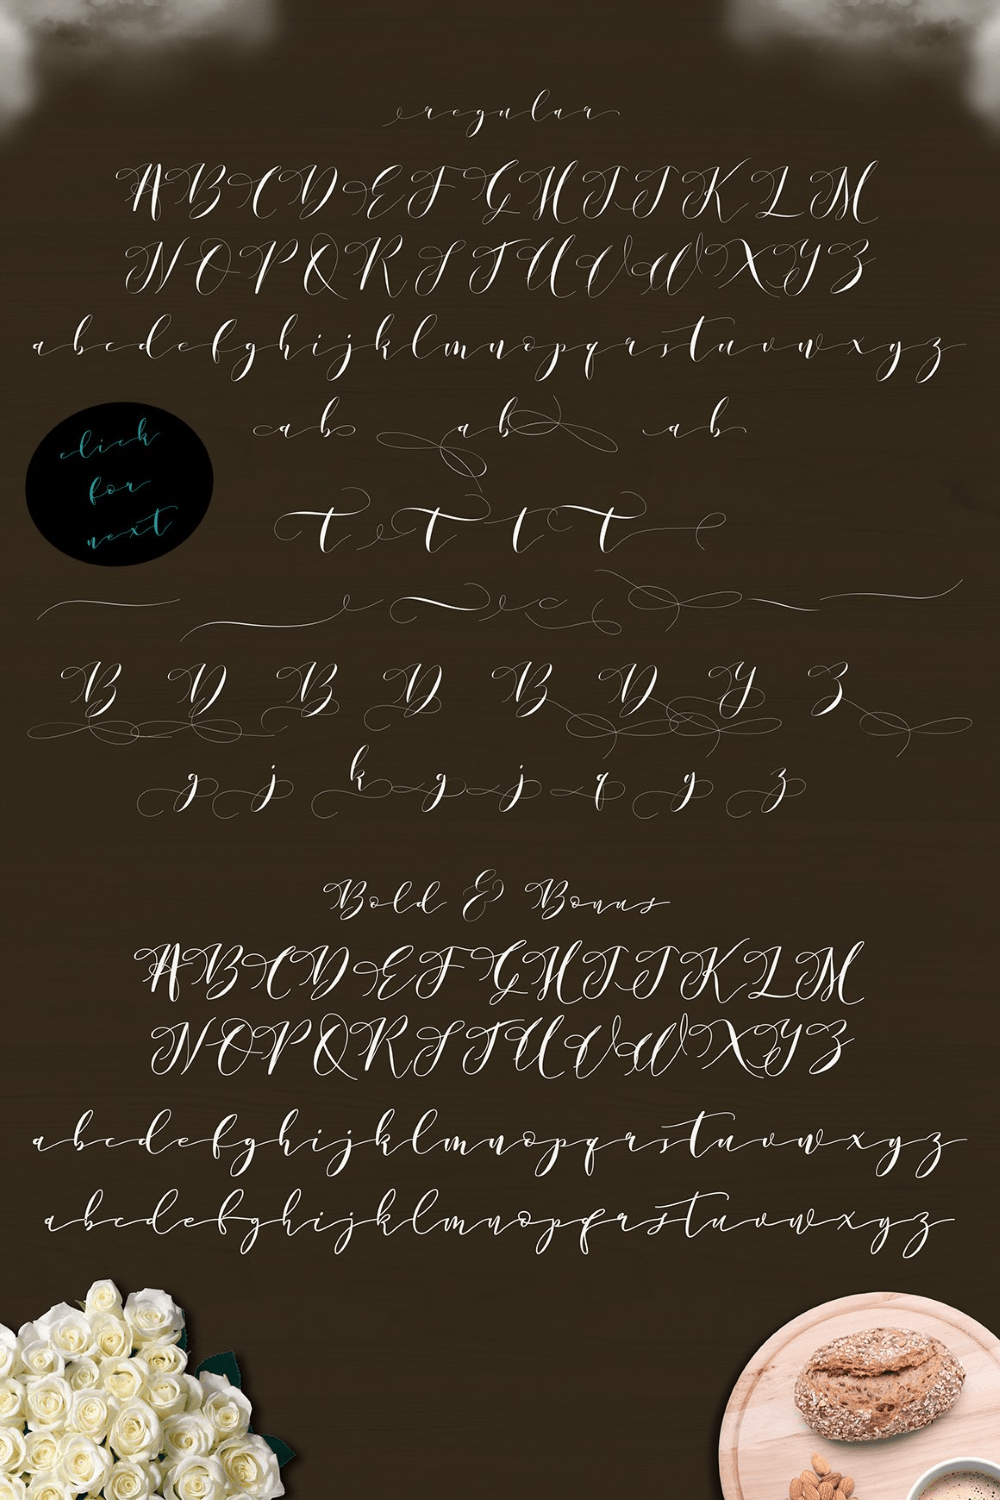 regular
ABCDEFGHIJKLM
NOPQRSTUVWXYZ
abcdefghijklmnopqrstuvwxyz
ab ab ab
click
for
next
t t t t
B D B D B D Y Z
g j k g j q y z
Bold & Bonus
ABCDEFGHIJKLM
NOPQRSTUVWXYZ
abcdefghijklmnopqrstuvwxyz
abcdefghijklmnopqrstuvwxyz